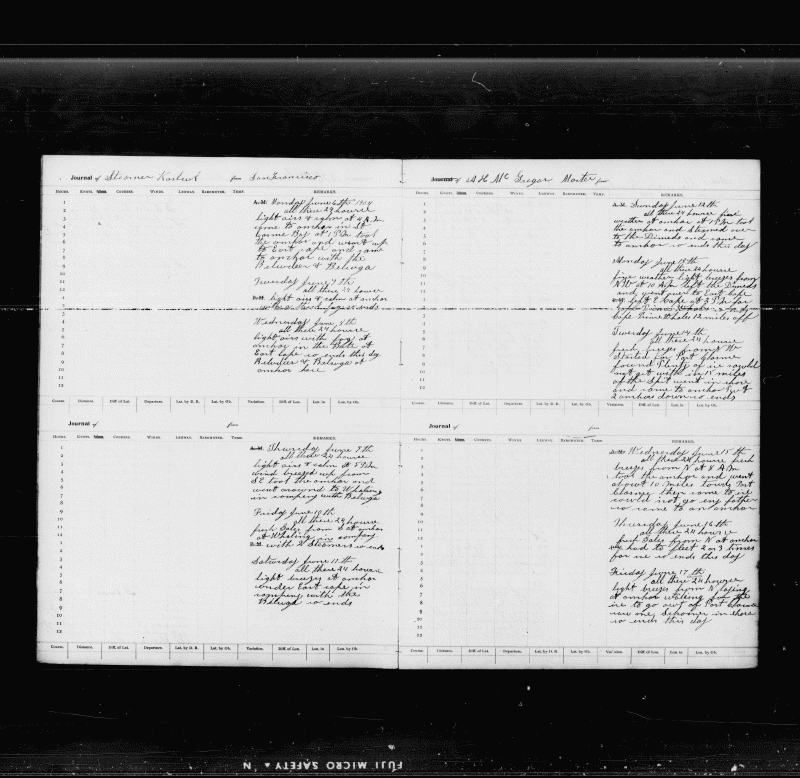 Journal of Steamer Karluk from San Francisco
HOURS. KNOTS. COURSES. WINDS. LEEWAY. BAROMETER. TEMP. REMARKS.
A.M. Monday June 6th 1904
all these 24 hourse
light airs & calm at 4 A.M.
came to anchor in St
at 1 P.M. took
the anchor and went up
to East cape and came
to anchor with the
Belvider & Beluga
Tuesday June 7th
all these 24 hourse
P.M. light airs & calm at anchor
ends
Wednesday June 8th
all these 24 hourse
light airs with fog at
anchor in the at
East cape so ends this day
Belvider & Beluga at
anchor here
Course. Distance. Diff. of Lat. Departure. Lat. by D. R. Lat. by Ob. Variation. Diff. of Lon. Lon. in Lon. by Ob.
Journal of from
HOURS. KNOTS. COURSES. WINDS. LEEWAY. BAROMETER. TEMP. REMARKS.
A.M. Thursday June 9th
all these 24 hourse
light airs & calm at 8 P.M.
wind breezed up from
S E took the anchor and
went around to Whaling
in company with Beluga
Friday June 10th
all these 24 hourse
fresh Gales from S at anchor
at Whaling in company
P.M. with 4 Steamers so ends
Saturday June 11th
all these 24 hourse
light breezes at anchor
under East cape in
company with the
Beluga so ends
Course. Distance. Diff. of Lat. Departure. Lat. by D. R. Lat. by Ob. Variation. Diff. of Lon. Lon. in Lon. by Ob.
Journal of A H Mc Gregar Master from
HOURS. KNOTS. COURSES. WINDS. LEEWAY. BAROMETER. TEMP. REMARKS.
A.M. Sunday June 12th
all these 24 hourse fine
weather at anchor at 1 P.M. took
the anchor and steamed over
to the Dimeds and came
to anchor so ends this day
Monday June 13th
all these 24 hourse
fine weather light breezes from
N W at 10 A.M. left the Dimeds
and went over to East cape
P.M. left E Cape at 2 P.M. for
Cape Prince Whales 12 miles off
Tuesday June 14th
all these 24 hourse
fresh breezes from N W
Started for Port Clarne
found Plenty of ice could
not get with in 15 miles
of the Spit went in shore
and came to anchor
2 anchors down so ends
Course. Distance. Diff. of Lat. Departure. Lat. by D. R. Lat. by Ob. Variation. Diff. of Lon. Lon. in Lon. by Ob.
Journal of from
HOURS. KNOTS. COURSES. WINDS. LEEWAY. BAROMETER. TEMP. REMARKS.
A.M. Wednesday June 15th
all these 24 hourse fresh
breezes from N at 8 A.M.
took the anchor and went
about 10 miles towards Port
Clarney then came to ice
could not go eny father
so came to an anchor
Thursday June 16th
all these 24 hourse
fresh Gales from N at anchor
had to fleet 2 or 3 times
for ice so ends this day
Friday June 17th
all these 24 hourse
light breezes from N laying
at anchor waiting for the
ice to go out of Port
one Schooner in shore
so ends this day
Course. Distance. Diff. of Lat. Departure. Lat. by D. R. Lat. by Ob. Variation. Diff. of Lon. Lon. in Lon. by Ob.
FUJI MICRO SAFETY ▲ N